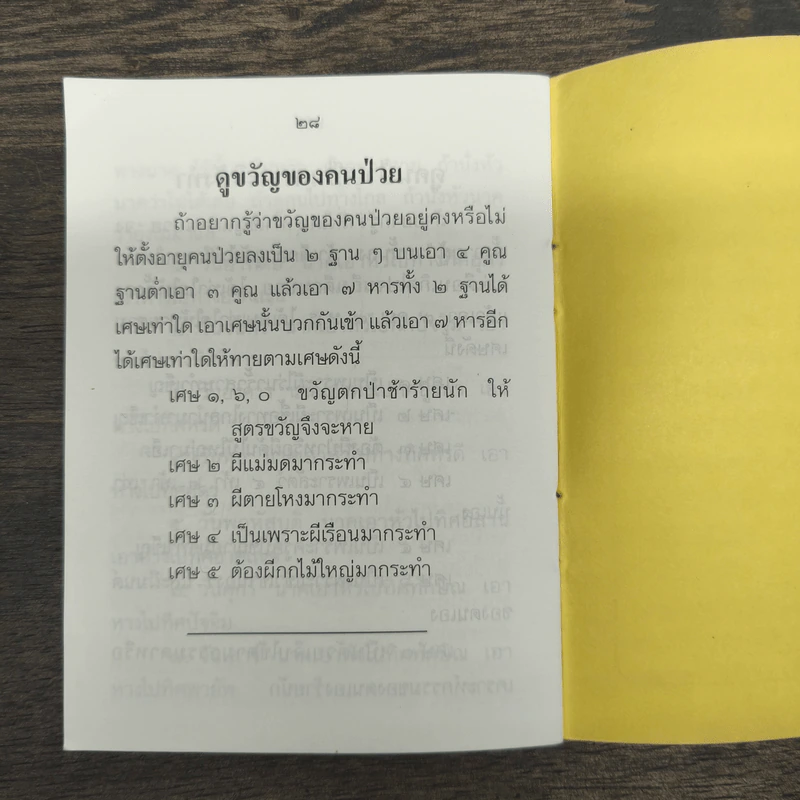 ๒๘
ดูขวัญของคนป่วย
ถ้าอยากรู้ว่าขวัญของคนป่วยอยู่คงหรือไม่
ให้ตั้งอายุคนป่วยลงเป็น ๒ ฐาน ๆ บนเอา ๔ คูณ
ฐานต่ำเอา ๓ คูณ แล้วเอา ๗ หารทั้ง ๒ ฐานได้
เศษเท่าใด เอาเศษนั้นบวกกันเข้า แล้วเอา ๗ หารอีก
ได้เศษเท่าใดให้ทายตามเศษดังนี้
เศษ ๑, ๖, ๐ ขวัญตกป่าช้าร้ายนัก ให้
สูตรขวัญจึงจะหาย
เศษ ๒ ผีแม่มดมากระทำ
เศษ ๓ ผีตายโหงมากระทำ
เศษ ๔ เป็นเพราะผีเรือนมากระทำ
เศษ ๕ ต้องผีกกไม้ใหญ่มากระทำ